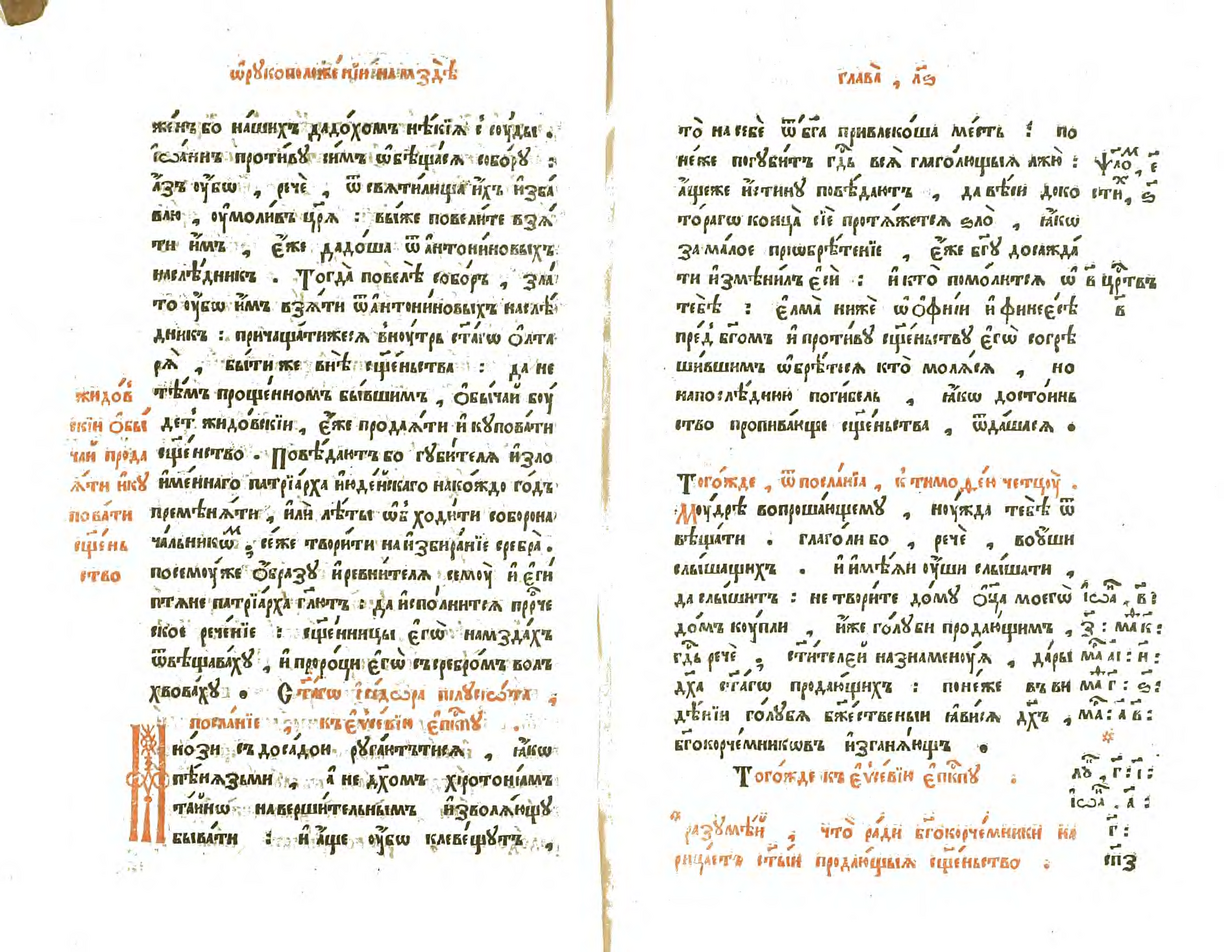 ѿрꙋкоположе́нїи на мздѣ̀
же́нъ бо на́шихъ дадо́хомъ нѣ́кїѧ ѐ соуды̀ .
і҆ѡа́ннъ проти́вꙋ си́мъ ѡ҆бѣща́сѧ собо́рꙋ :
а҆́зъ оу҆́бѡ , речѐ , ѿ свѧти́лища и҆́хъ и҆зба́
влю , оу҆моли́въ цр҃ѧ̀ : вы́же повели́те взѧ́
ти и҆̀мъ , є҆́же дадо́ша ѿ а҆нтони́новыхъ
наслѣ́дникъ . Тогда̀ повелѣ̀ собо́ръ , зла́
то оу҆́бѡ и҆̀мъ взѧ́ти ѿ а҆нтони́новыхъ наслѣ́
дникъ : причаща́тижесѧ внꙋ́трь ст҃а́гѡ ѻ҆лта
рѧ̀ , бы́ти же внѣ̀ сщ҃е́ньства : да не
тѣ́мъ проще́нномъ бы́вшимъ , ѻ҆бы́чай бꙋ́
детъ жидо́вскїи , є҆́же продаѧ́ти и҆ кꙋпова́ти
сщ҃е́нство . Повѣ́даютъ бо гꙋби́телѧ и҆ ѕло
и҆ме́ннаго патрїа́рха и҆юде́йскаго нако́ждо го́дъ
премѣнѧ́ти , и҆лѝ лѣ́ты ѡ҆бходи́ти соборона
ча́льникѡм . се́же твори́ти на и҆збира́нїе сребра̀ .
посемꙋ́же ѻ҆́бразꙋ и҆ ревни́телѧ семꙋ̀ и҆ є҆гѵ́
птѧне патрїа́рха гл҃ютъ : да и҆спо́лнитсѧ прⷪ҇ро́че
ское рече́нїе : сщ҃е́нницы є҆гѡ̀ намзда́хъ
ѿвѣщава́хꙋ , и҆ проро́цы є҆гѡ̀ съ сребро́мъ вол
хвова́хꙋ . Ст҃а́гѡ і҆си́дѡра пилꙋсїѡ́та ,
посла́нїе , къ є҆ѵсе́вїю є҆пⷭ҇кпꙋ .
Мно́зи съ доса́дою рꙋга́ютътисѧ , ꙗ҆́кѡ
пѣ́нѧзьми , а҆ не дх҃омъ хїротонїа́мъ
та́йнѡ наверши́тельнымъ и҆зволѧ́ющꙋ
быва́ти : и҆ а҆́ще оу҆́бѡ клеве́щꙋтъ ,
жидо́в
скїи ѻ҆бы́
чай прода
ѧ́ти и҆ кꙋ
пова́ти
сщ҃е́нь
ство
глава̀ , л҃ѕ
то̀ на себѐ ѿ бг҃а привлеко́ша ме́сть : по
не́же погꙋби́тъ гд҇ь всѧ̀ глаго́лющыѧ лжꙋ̀ :
а҆́щеже и҆́стинꙋ повѣ́даютъ , да вѣ́си доко
то́рагѡ конца̀ сїѐ протѧ́жетсѧ ѕло̀ , ꙗ҆́кѡ
за ма́лое прїѡбрѣ́тенїе , є҆́же бг҃ꙋ досажда́
ти и҆змѣни́лъ є҆сѝ : и҆ кто̀ помо́литсѧ ѡ҆
тебѣ̀ : є҆лма̀ нижѐ ѡ҆ ѻ҆фни́и и҆ финее́сѣ
пред̾ бг҃омъ и҆ проти́вꙋ сщ҃е́ньствꙋ є҆гѡ̀ согрѣ
ши́вшимъ ѡ҆брѣ́тесѧ кто̀ молѧ́сѧ , но
напослѣ́днюю поги́бель , ꙗ҆́кѡ досто́инь
ство пропива́юще сщ҃е́ньства , ѿда́шасѧ .
Того́жде , ѿ посла́нїѧ , к тимоѳе́ю четцꙋ̀ .
Мꙋ́дрѣ вопроша́ющемꙋ , нꙋ́жда тебѣ̀ ѿ
вѣща́ти . глаго́ли бо , речѐ , воу҆́ши
слы́шащихъ . и҆ и҆мѣ́ѧи оу҆́ши слы́шати ,
да слы́шитъ : не твори́те до́мꙋ ѻ҆ц҃а̀ моегѡ̀
до́мъ кꙋ́пли , и҆́же го́лꙋби продаю́щимъ ,
гд҇ь речѐ , ст҃и́телей назна́менꙋѧ , да́ры
дх҃а ст҃а́гѡ продаю́щихъ : поне́же въ ви
дѣ́нїи го́лꙋбѧ бж҃е́ственыи ꙗ҆ви́сѧ дх҃ъ ,
бг҃окорче́мникѡвъ и҆зганѧ́ющъ .
Тогѡ́жде къ є҆ѵсе́вїю є҆пⷭ҇кпꙋ .
разꙋмѣ́й , что̀ ра́ди бг҃окорче́мники на
рица́етъ ст҃ы́й продаю́щыѧ сщ҃е́ньство .
ѱало́м , є҃
сти́х , ѕ҃
в҃ црⷭ҇твъ
в҃
і҆ѡа́ , в҃ :
з҃ : ма́р к҃ :
ма́ а҃і : и҃ :
ма́ г҃ : ѕ҃ :
ма́ : а҃ в҃ :
лꙋ́ , г҃ : і҃ :
і҆ѡа́ , а҃ :
г҃ :
сп҃з